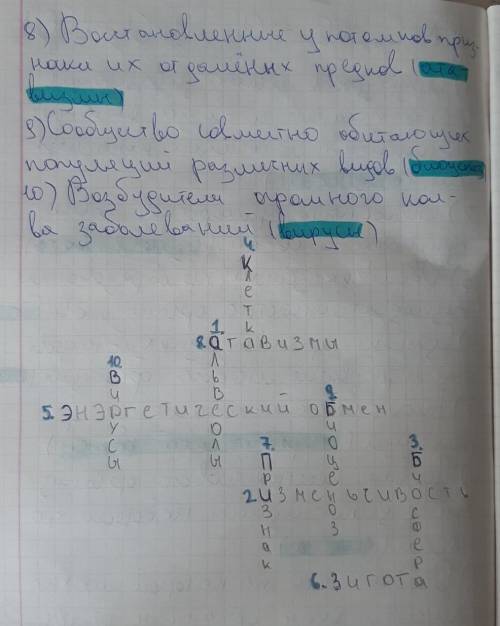 8) Восстановленные у потомков приз-
наки их отдалённых предков (ата-
визмы)
9) Сообщество совместно обитающих
популяций различных видов (биоценоз)
10) Возбудители огромного кол-
ва заболеваний (вирусы)
4. Клетка
1. альвеолы
8. атавизмы
10. Вирусы
9. Биоценоз
5. Энэргетический обмен
7. Признак
3. Биосфера
2. Изменьчивость
6. Зигота